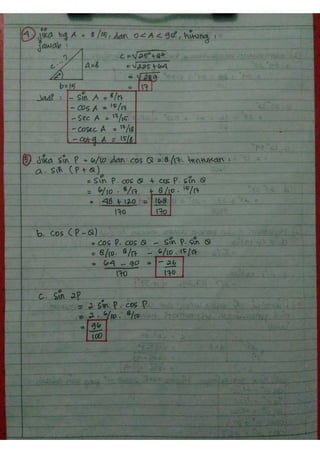 4. Jika tg A = 8/15, dan 0<A<90°, hitung :
Jawab :
c = ?
a=8
b=15
c = √25² + 8²
= √225 + 64
= √289
= 17
Jadi : - Sin A = 8/17
- Cos A = 15/17
- Sec A = 17/15
- Cosec A = 17/8
- Cotg A = 15/8
5. Jika Sin P = 6/10 dan cos Q = 8/17. tentukan :
a. Sin (P + Q)
= Sin P. cos Q + cos P. Sin Q
= 6/10 . 8/17 + 8/10 . 15/17
= 48 + 120 = 168
170 170
b. cos (P - Q)
= cos P. cos Q - Sin P. Sin Q
= 8/10. 8/17 - 6/10 . 15/17
= 64 - 90 = - 26
170 170
c. Sin 2P
= 2 Sin P. cos P.
= 2 . 6/10 . 8/10
= 96
100